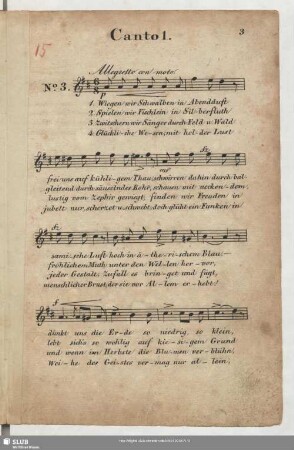 Canto 1.
3
15
Allegretto con moto
No 3.
p
1. Wiegen wir Schwalben in Abendduft
2. Spielen wir Fischlein in Silberfluth
3. Zwitschern wir Sänger durch Feld u. Wald
4. Glückli-che We-sen, mit hol-der Lust
mf
frei uns auf kühli-gem Thau, schwirren dahin durch bal
gleitend durch säuselndes Rohr, schauen mit necken-dem
lustig vom Zephir gewagt, finden wir Freuden in
jubelt nur, scherzet u. schwebt, doch glüht ein Funken in
fz
sami-sche Luft hoch in ä-the-rischem Blau;
fröhlichem Muth unter den Wel-len her-vor,
jeder Gestalt, Zufall es brin-get und fügt,
menschlicher Brust, der sie vor Al-lem er-hebt!
f
dünkt uns die Er-de so niedrig, so klein,
lebt sich's so wohlig auf kie-si-gem Grund
und wenn im Herbste die Blu-men ver-blühn,
Wei-he des Gei-stes ver-mag nur al-lein,
SLUB